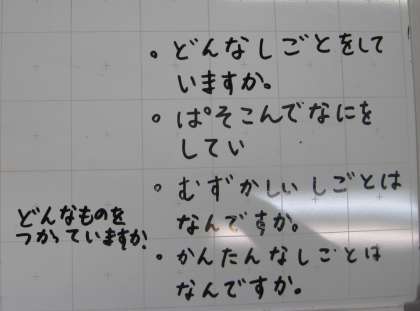 ・どんなしごとをして
いますか。
・ぱそこんでなにを
してい
・むずかしいしごとは
なんですか。
・かんたんなしごとは
なんですか。
どんなものを
つかっていますか?